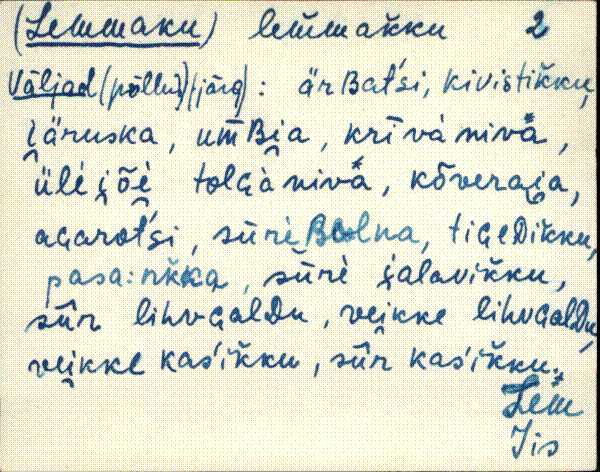 (Lemmaku) lem̆makku 2
Väljad (põllud) (järg): ärBat́si, kivistikku,
i̯äruska, um̄Bi̯a, krīvȧ nivä,
üĺėi̯õė tolGȧ nivä, kõverai̯a,
aGarot́si, sūrėBolna, tiGeDikku,
pasa:rikka, sūrė i̯alavikku,
sūr lihvGalDu, vei̯kke lihvGalDu,
vei̯kke kaśikku, sūr kaśikku.
Lem
Jis